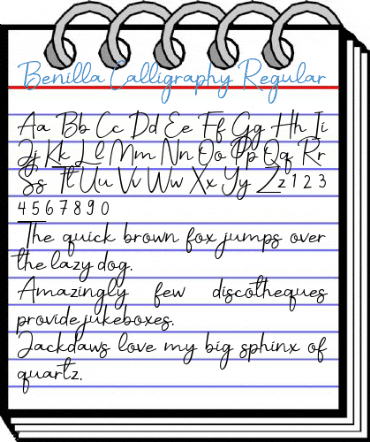 Benilla Calligraphy Regular
Aa Bb Cc Dd Ee Ff Gg Hh Ii
Jj Kk Ll Mm Nn Oo Pp Qq Rr
Ss Tt Uu Vv Ww Xx Yy Zz 1 2 3
4 5 6 7 8 9 0
The quick brown fox jumps over
the lazy dog.
Amazingly few discotheques
provide jukeboxes.
Jackdaws love my big sphinx of
quartz.